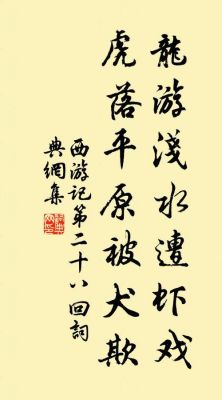 龍游淺水遭虾戏
虎落平原被犬欺
西游记第二十八回詞
典網集